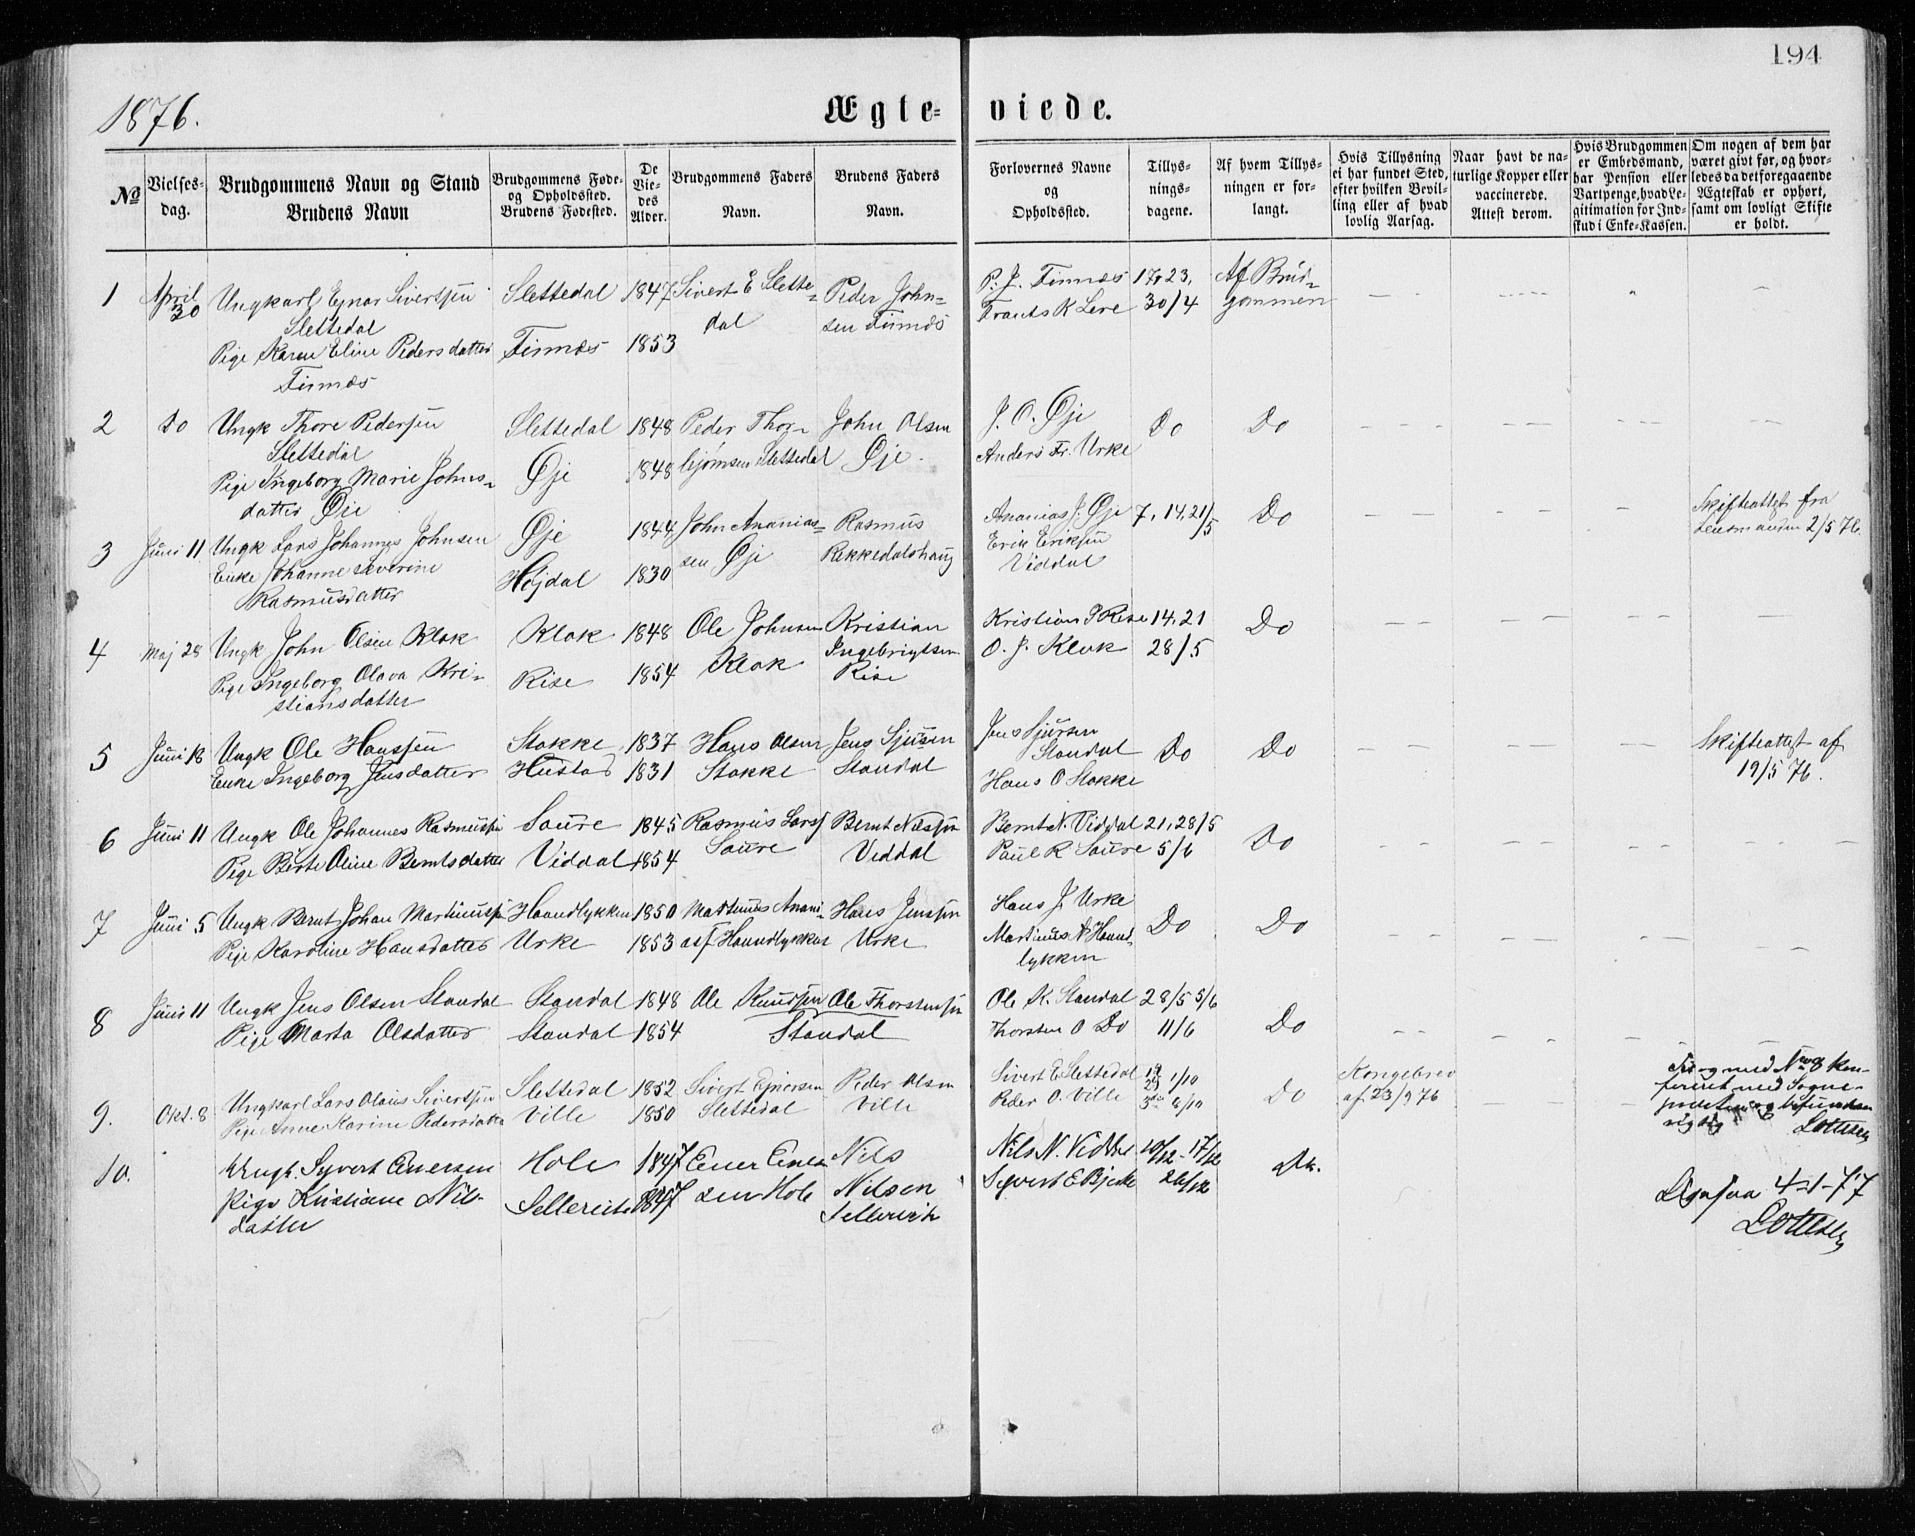 194
1876.
Ægte- viede.
№
Vielses-
dag.
Brudgommens Navn og Stand
Brudens Navn
Brudgommens Føde-
og Opholdssted.
Brudens Fødested.
De
Vie-
des
Alder.
Brudgommens Faders
Navn.
Brudens Faders
Navn.
Forlovernes Navne
og
Opholdssted.
Tillys-
nings-
dagene.
Af hvem Tillys-
ningen er for-
langt.
Hvis Tillysning
ei har fundet Sted,
efter hvilken Bevil-
ling eller af hvad
lovlig Aarsag.
Naar havt de na-
turlige Kopper eller
vaccinerede.
Attest derom.
Hvis Brudgommen
er Embedsmand,
har Pension eller
Vartpenge, hvad Le-
gitimation for Ind-
skud i Enke-Kassen.
Om nogen af dem har
været givt før, og hvor-
ledes da det foregaaende
Ægteskab er ophørt,
samt om lovligt Skifte
er holdt.
1
April
30
Ungkarl Ejnar Sivertsen
Slettedal
Pige Karen Eline Pedersdatter
Finnæs
Slettedal
Finnæs
1847
1853
Sivert E Slette-
dal
Peder John-
sen Finnæs
P. J. Finnæs
Frants K Leve
17, 23,
30/4
Af Brud-
gommen
2
do
Ungk Thore Pedersen
Slettedal
Pige Ingeborg Marie Johns-
datter Øie
Slettedal
Øje
1848
1848
Peder Thor-
bjørnsen Slettedal
John Olsen
Øje.
J. O. Øje
Anders Fr. Urke
Do
Do
3
Juni 11
Ungk Lars Johannes Johnsen
Enke Johanne Severine
Rasmusdatter
Øje
Højdal
1844
1830
John Ananias-
sen Øje
Rasmus
Rekkedalshaug
Ananias J. Øje
Erik Eriksen
Viddal
7, 14, 21/5
Do
Skifteattest fra
Lensmanden 2/5 76.
4
Maj 28
Ungk John Olsen Klok
Pige Ingeborg Olava Kri-
stiansdatter
Klok
Rise
1848
1854
Ole Johnsen
Klok
Kristian
Ingebrigtsen
Rise
Kristian P Rise
O. J. Klok
14, 21
28/5
Do
5
Juni 18
Ungk Ole Hanssen
Enke Ingeborg Jensdatter
Stokke
Hustad
1837
1831
Hans Olsen
Stokke
Jens Sjursen
Standal
Jens Sjursen
Standal
Hans O Stokke
Do
Do
Skifteattest af
19/5 76.
6
Juni 11
Ungk Ole Johannes Rasmussen
Pige Berte Oline Berntsdatter
Saure
Viddal
1845
1854
Rasmus Larsf
Saure
Bernt Nilssen
Viddal
Bernt N. Viddal
Paul R Saure
21, 28/5
5/6
Do
7
Juni 5
Ungk Bernt Johan Martinussen
Pige Karoline Hansdatter
Haandlykken
Urke
1850
1853
Martinus Anani-
asf Haandlykken
Hans Jenssen
Urke
Hans J. Urke
Martinus A Haand-
lykken
Do
Do
8
Juni 11
Ungk Jens Olsen Standal
Pige Marta Olsdatter
Standal
Standal
1848
1854
Ole Knudsen
Ole Thorstensen
Standal
Ole K. Standal
Thorsten O Do
28/5 5/6
11/6
Do
9.
Okt. 8
Ungkarl Lars Olaus Sivertsen
Pige Anne Karine Pedersdatter
Slettedal
Ville
1852
1850
Sivert Ejnersen
Slettedal
Peder Olsen
Ville
Sivert E Slettedal
Peder O. Ville
1/10
8/10
Do
Kongebrev
af 23/9 76
Til og med No 8 kon-
fereret med Sogne-
og befunden
rigtig
10.
Ungk. Syvert Einersen
Pige Kristiane Nils-
datter
Hole
1847
1847
Einer Einer-
sen Hole
Nils
Nilsen
Nils N. Viddal
Syvert E Bjerke
10/12 - 17/12
26/12
Do.
4-1-77